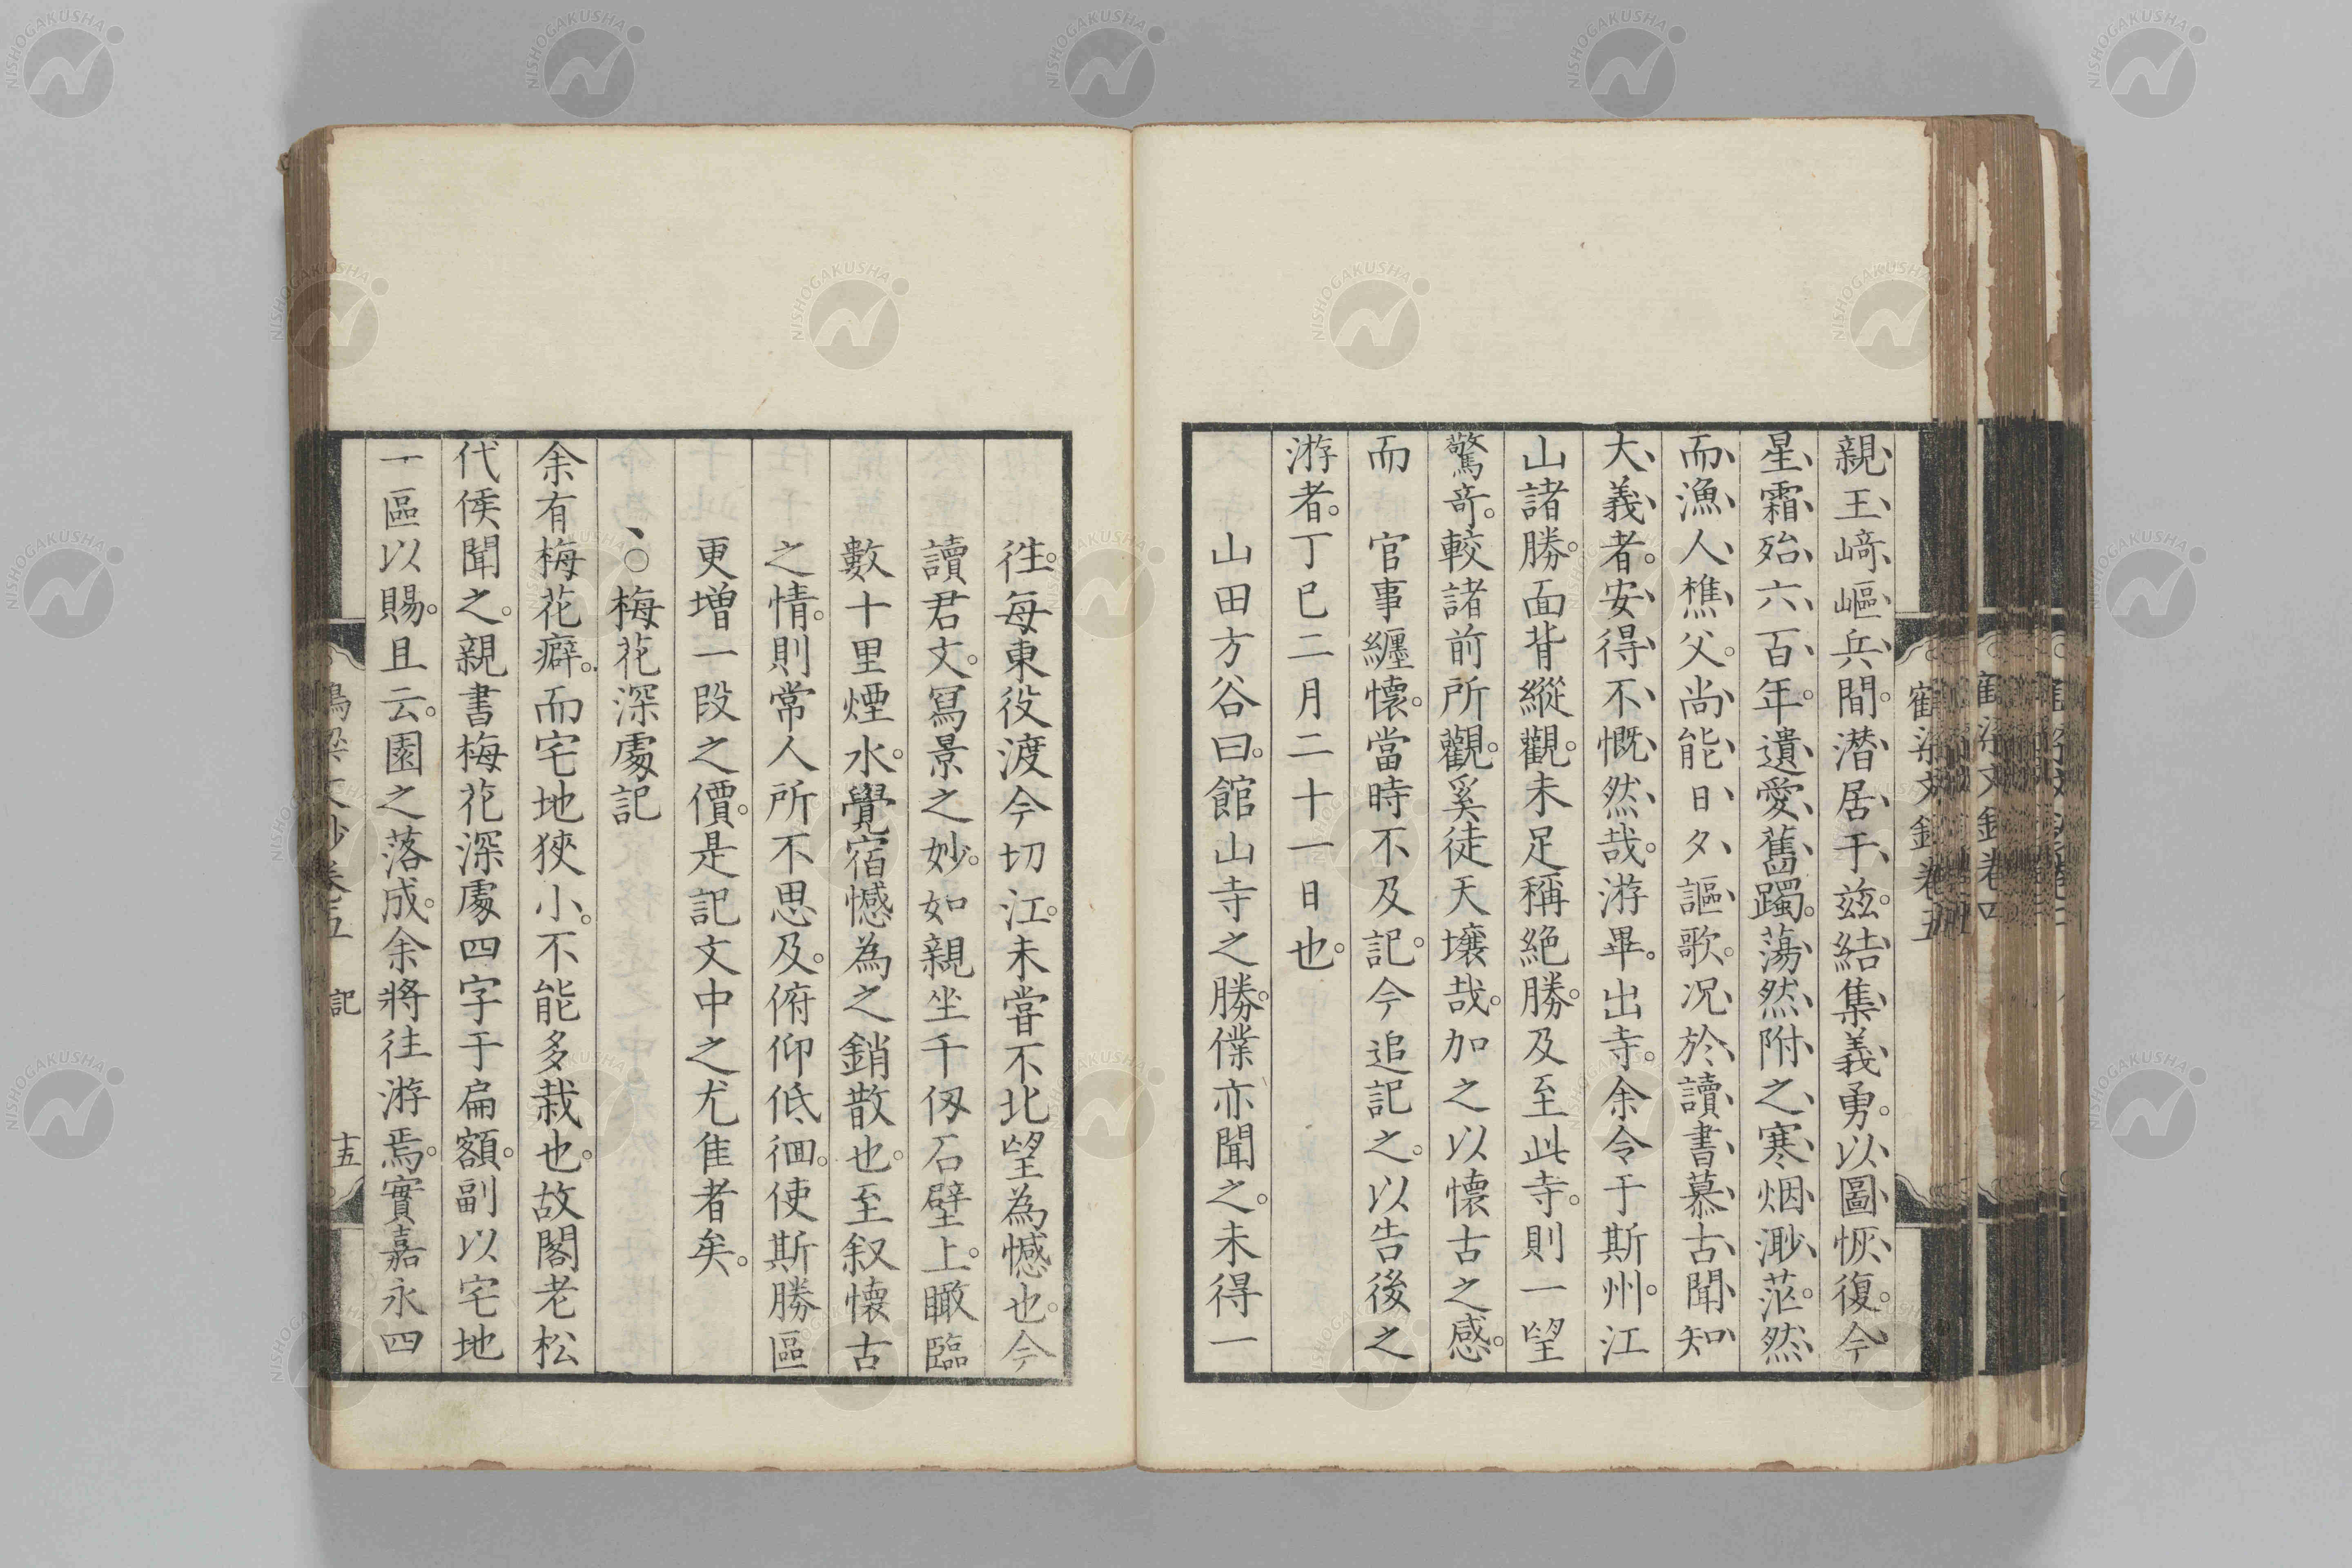 親王﨑嶇兵間。潜居于茲。結集義勇。以圖恢復。今
星霜殆六百年。遺愛舊躅。蕩然附之寒烟渺茫。然
而漁人樵父。尚能日夕謳歌。况於讀書慕古聞知
大義者。安得不慨然哉。游畢。出寺。余令于斯州。江
山諸勝。面背縱觀。未足稱絶勝。及至此寺。則一望
驚奇。較諸前所觀。奚徒天壤哉。加之以懷古之感。
而　官事纏懷。當時不及記。今追記之。以告後之
游者。丁巳二月二十一日也。
山田方谷曰。館山寺之勝。僕亦聞之。未得一
徃。每東役渡今切江。未嘗不北望為憾也。今
讀君文。寫景之妙。如親坐千仭石壁上。瞰臨
數十里煙水。覺宿憾為之銷散也。至叙懷古
之情。則常人所不思及。俯仰低徊。使斯勝區
更增一段之價。是記文中之尤隹者矣。
、○梅花深處記
余有梅花癖。而宅地狹小。不能多栽也。故閣老松
代侯聞之。親書梅花深處四字于扁額。副以宅地
一區以賜。且云。園之落成。余將往游焉。實嘉永四
記
十五
NISHOGAKUSHA